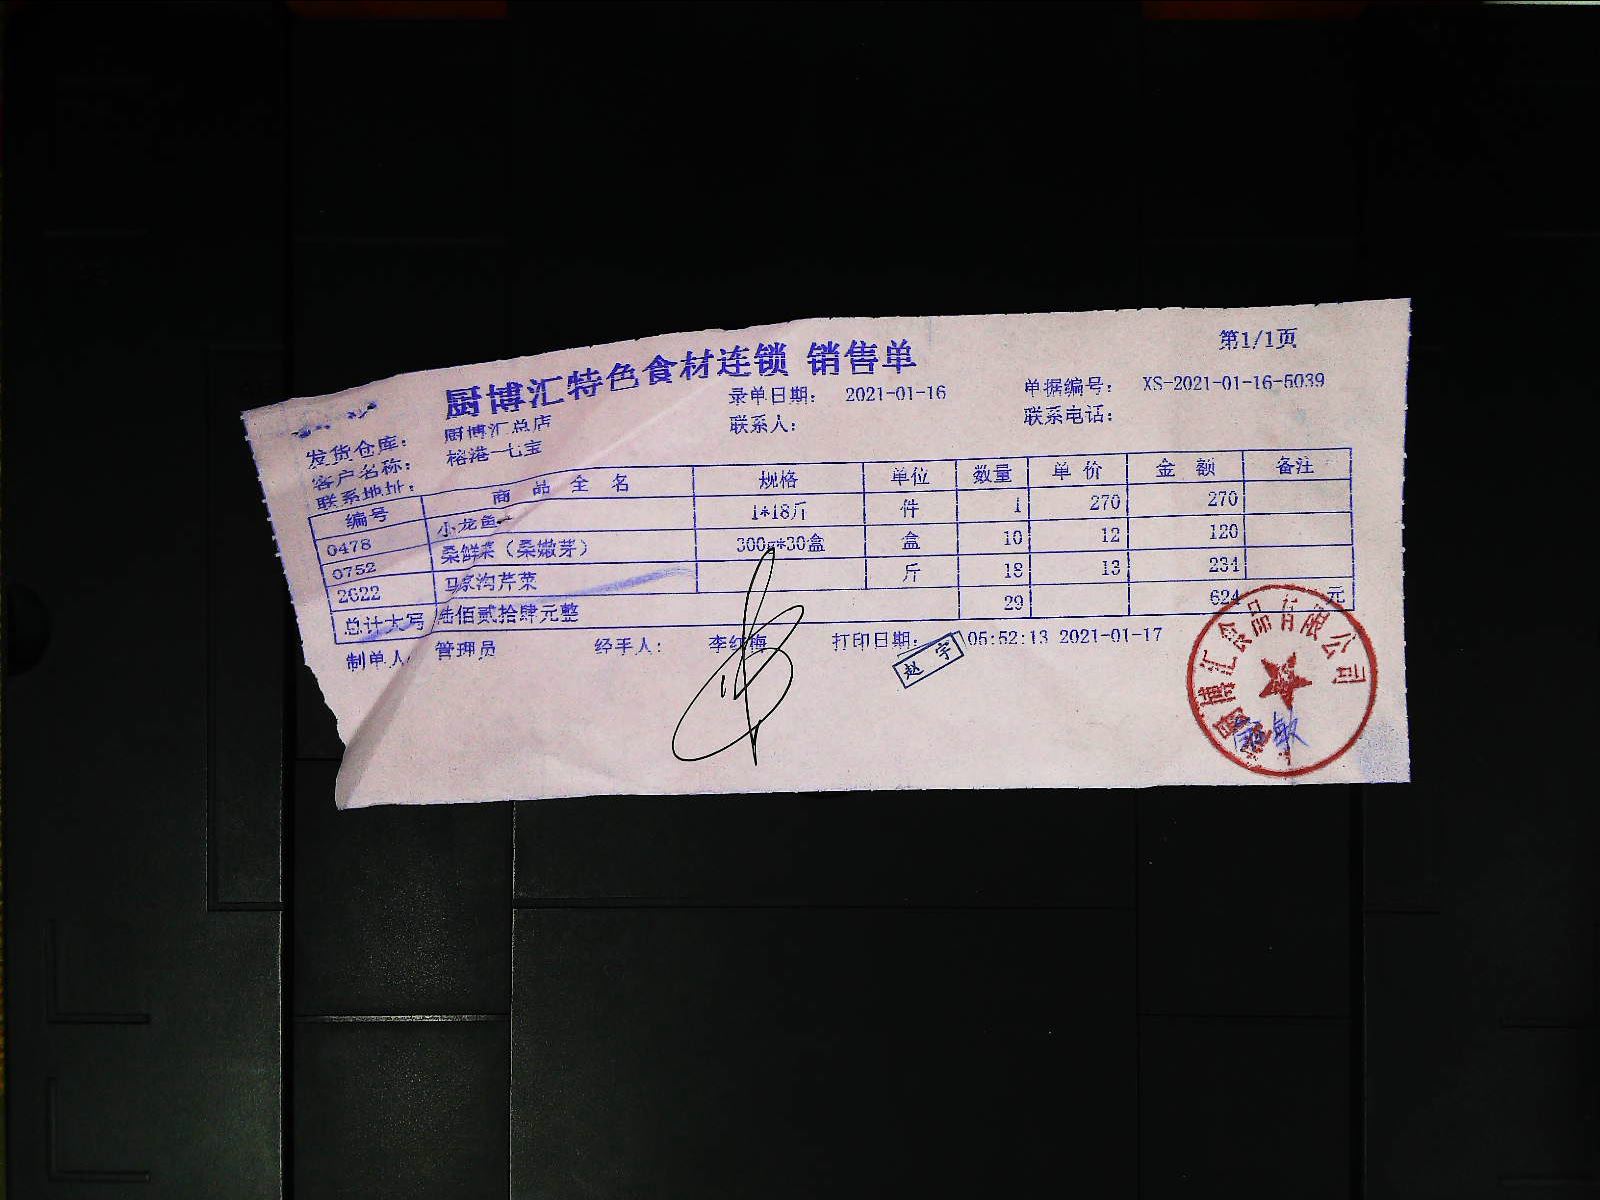 第1/1页
厨博汇特色食材连锁 销售单
发货仓库： 厨博汇总店 录单日期： 2021-01-16 单据编号： XS-2021-01-16-5039
客户名称： 榕港一七宝 联系人： 联系电话：
联系地址：
编号 商品全名 规格 单位 数量 单价 金额 备注
0478 小龙鱼 1*18斤 件 1 270 270
0752 桑鲜菜（桑嫩芽） 300g*30盒 盒 10 12 120
2622 马家沟芹菜 斤 18 13 234
总计大写 陆佰贰拾肆元整 29 624 元
制单人 管理员 经手人： 李红梅 打印日期： 05:52:13 2021-01-17
赵宇
厨博汇食品有限公司
敏